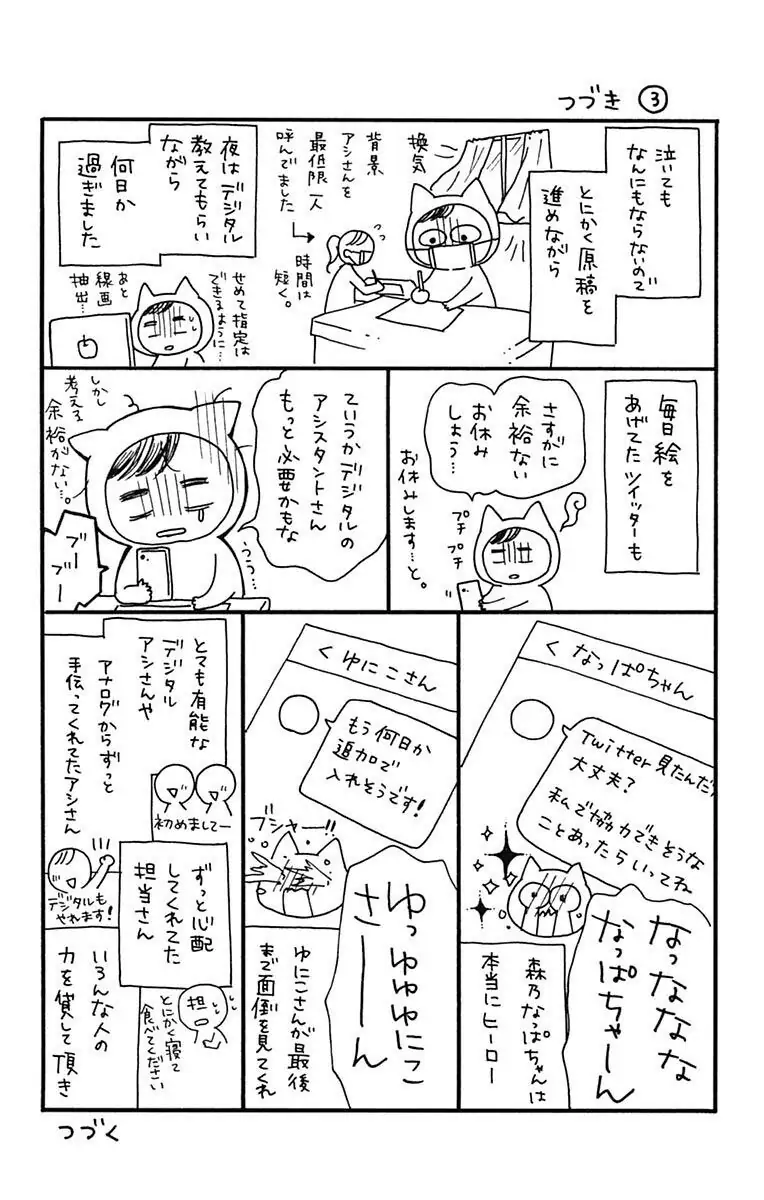 つづき ③
泣いても
なんにもならないので
とにかく原稿を
進めながら
換気
背景
アシさんを
最低限一人
呼んでました
→時間は
短く。
夜はデジタル
教えてもらい
ながら
何日か
過ぎました
せめて指定は
できるように…
あと
線画
抽出…
毎日絵を
あげてたツイッターも
さすがに
余裕ない
お休み
しよう…
プチ
プチ
お休みします…と。
ていうかデジタルの
アシスタントさん
もっと必要かもな
ううう…
しかし
考える
余裕がない…。
ブー
ブー
< なっぱちゃん
Twitter見たんだけ
大丈夫?
私で協力できそうな
ことあったらいってね
なっななな
なっぱちゃーん
森乃なっぱちゃんは
本当にヒーロー
< ゆにこさん
もう何日か
追加で
入れそうです!
ブシャー!!
ゆっゅゅゅにこ
さーーん
ゆにこさんが最後
まで面倒を見てくれ
とても有能な
デジタル
アシさんや
初めましてー
アナログからずっと
手伝ってくれてたアシさん
デジタルも
やれます!
ずっと心配
してくれてた
担当さん
担
とにかく寝て
食べてください
いろんな人の
力を貸して頂き
つづく